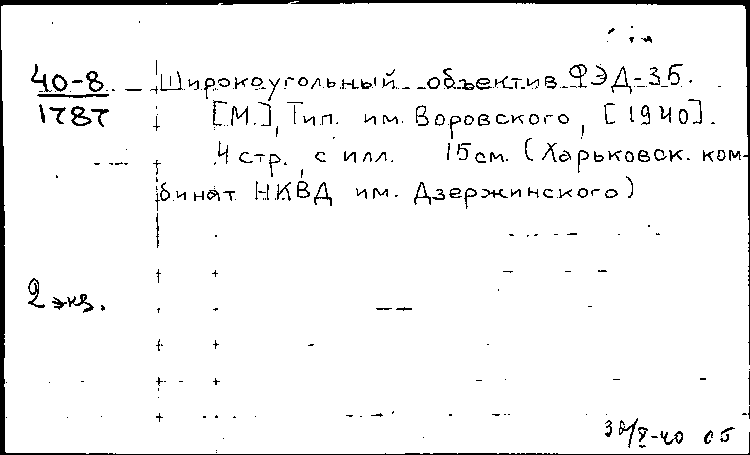 40-8
1787
Широкоугольный объектив ФЭД-35.
[М.], Тип. им. Воровского, [1940].
4 стр., с илл. 15 см. (Харьковск. ком-
бинат НКВД им. Дзержинского)
2 экз.
X-40 об